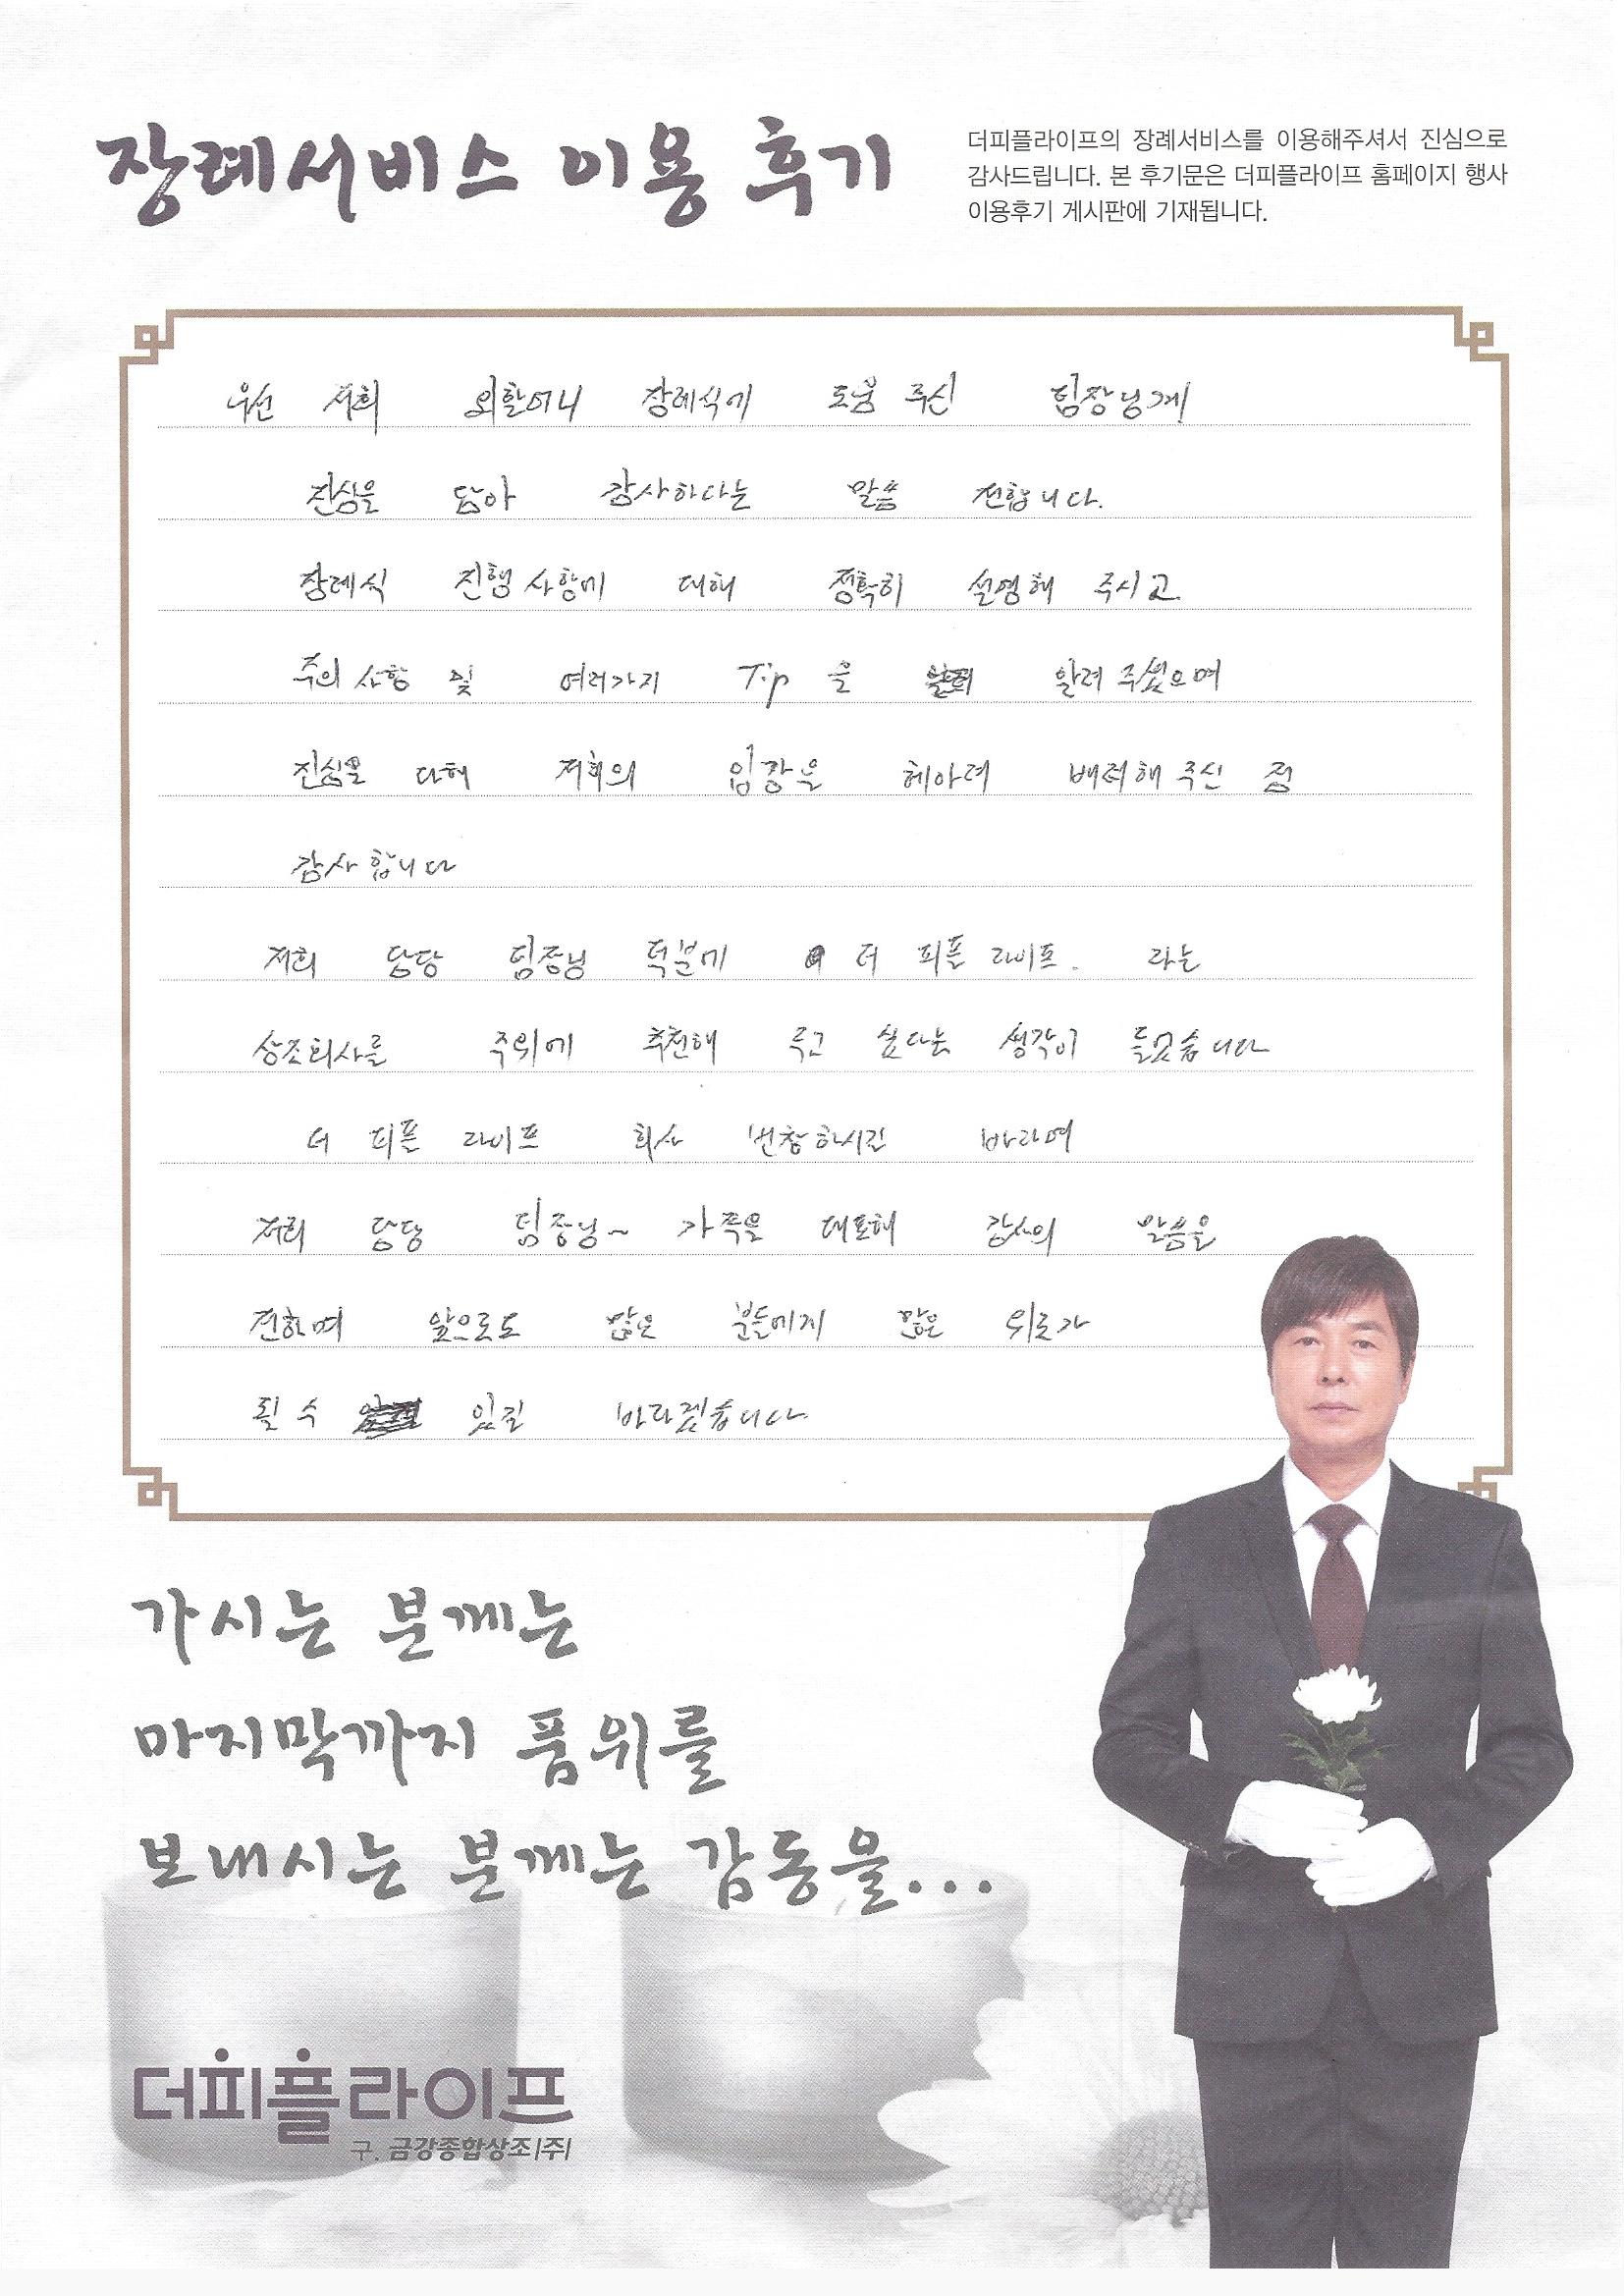 장례서비스 이용 후기
더피플라이프의 장례서비스를 이용해주셔서 진심으로
감사드립니다. 본 후기문은 더피플라이프 홈페이지 행사
이용후기 게시판에 기재됩니다.
우선 저희 외할머니 장례식에 도움 주신 팀장님께
진심을 담아 감사하다는 말씀 전합니다.
장례식 진행사항에 대해 정확히 설명해 주시고
주의사항 및 여러가지 Tip 을 알려주셨으며
진심을 다해 저희의 입장을 헤아려 배려해주신 점
감사합니다
저희 담당 팀장님 덕분에 더 피플 라이프. 라는
상조회사를 주위에 추천해 주고 싶다는 생각이 들었습니다
더 피플 라이프 회사 번창하시길 바라며
저희 담당 팀장님~ 가족을 대표해 감사의 말씀을
전하며 앞으로도 많은 분들에게 많은 위로가
될 수 있길 바라겠습니다
가시는 분께는
마지막까지 품위를
보내시는 분께는 감동을...
더피플라이프
구. 금강종합상조|주|